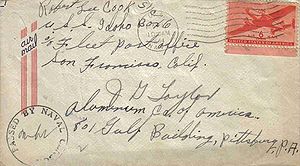 Robert Lee Cook S/c
U.S.S. Idaho Box 6
c/o Fleet Post Office
San Francisco, Calif.
air
mail
6
UNITED STATES OF AMERICA
J. G. Taylor
Aluminum Co. of America.
801 Gulf Building, Pittsburg,
P.A.
PASSED BY NAVAL